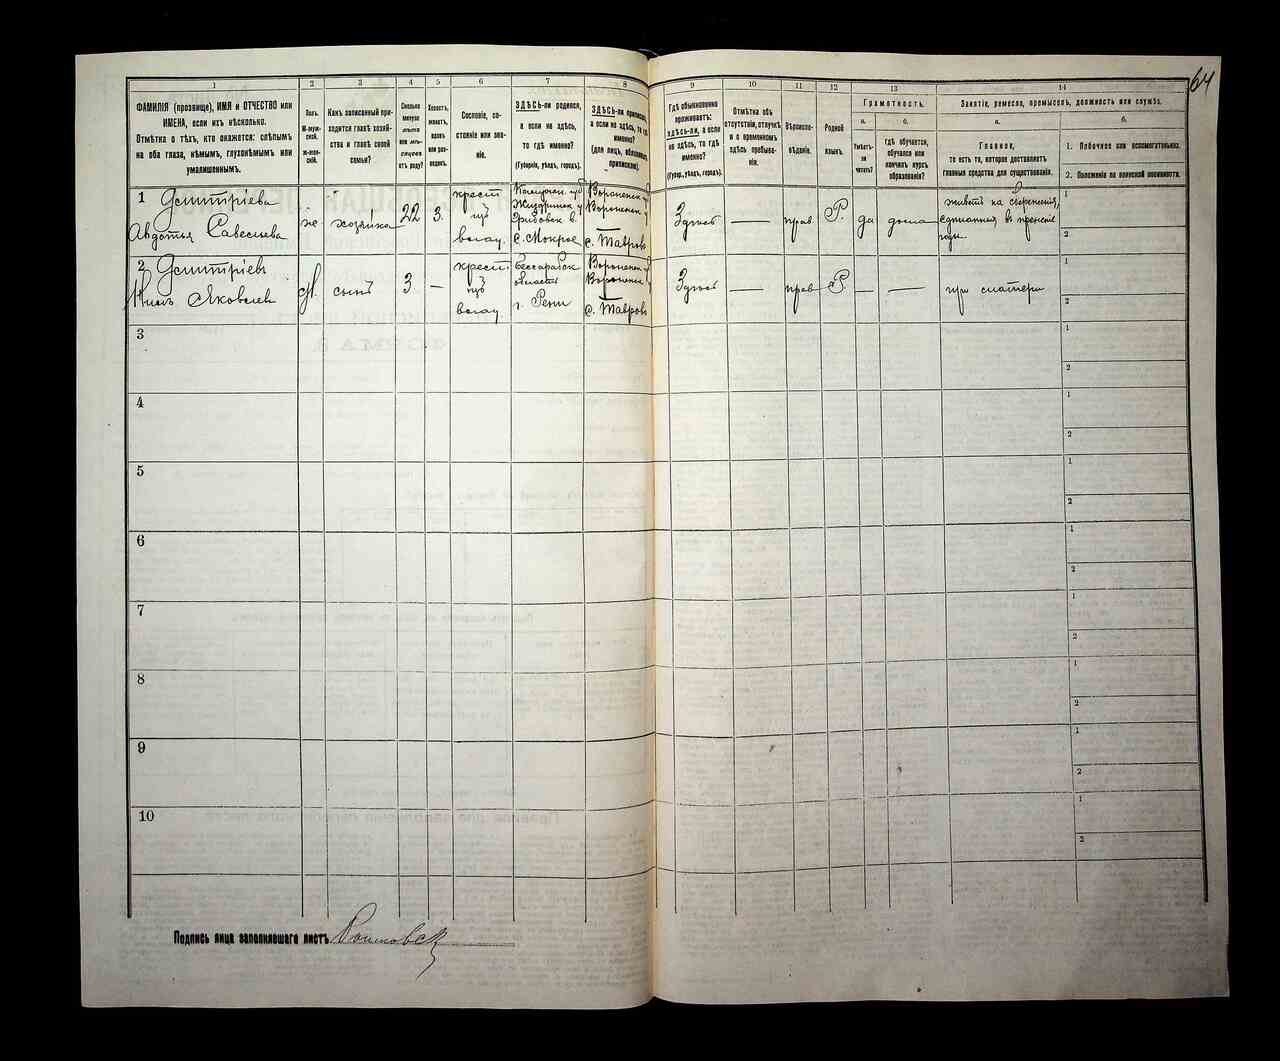 64
1
2
3
4
5
6
7
8
9
10
11
12
13
14
ФАМИЛІЯ (прозвище), ИМЯ и ОТЧЕСТВО или
ИМЕНА, если ихъ нѣсколько.
Отмѣтка о тѣхъ, кто окажется: слѣпымъ
на оба глаза, нѣмымъ, глухонѣмымъ или
умалишеннымъ.
Полъ.
М-муж-
ской.
Ж-жен-
скій.
Какъ записанный при-
ходится главѣ хозяй-
ства и главѣ своей
семьи?
Сколько
минуло
лѣтъ
или мѣ-
сяцевъ
отъ роду?
Холостъ,
женатъ,
вдовъ
или раз-
веденъ.
Сословіе, со-
стояніе или зва-
ніе.
ЗДѢСЬ-ли родился,
а если не здѣсь,
то гдѣ именно?
(Губернія, уѣздъ, городъ).
ЗДѢСЬ-ли приписанъ,
а если не здѣсь, то гдѣ
именно?
(для лицъ, обязанныхъ
припиской).
Гдѣ обыкновенно
проживаетъ:
ЗДѢСЬ-ли, а если
не здѣсь, то гдѣ
именно?
(Губерн., уѣздъ, городъ).
Отмѣтка объ
отсутствіи, отлучкѣ
и о временномъ
здѣсь пребыва-
ніи.
Вѣроиспо-
вѣданіе.
Родной
языкъ.
Грамотность.
а.
Умѣетъ-
ли
читать?
б.
гдѣ обучается,
обучался или
кончилъ курсъ
образованія?
Занятіе, ремесло, промыселъ, должность или служба.
а.
Главное,
то есть то, которое доставляетъ
главныя средства для существованія.
б.
1. Побочное или вспомогательное.
2. Положеніе по воинской повинности.
1
Дмитріева
Авдотья Савельева
ж
хозяйка
22
3.
крест
изъ
владу.
Жиздринск. у
с. Мокрое
Воронежск. г
Воронежск. у
с. Таврово
Здѣсь
—
прав
Р.
да
дома
живетъ на сбереженія,
годы.
1
2
2
Дмитріевъ
Яковлевъ
М.
сынъ
3
—
крест
изъ
владу.
Бессарабск
область
г. Рени
Воронежск. г
Воронежск. у
с. Таврово
Здѣсь
—
прав
Р
—
—
при матери
1
2
3
1
2
4
1
2
5
1
2
6
1
2
7
1
2
8
1
2
9
1
2
10
1
2
Подпись лица заполнявшаго листъ